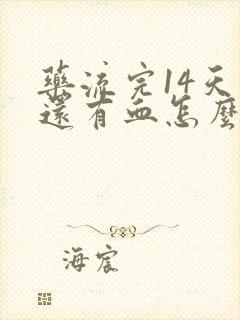 藥流完14天
還有血怎麼
海宸